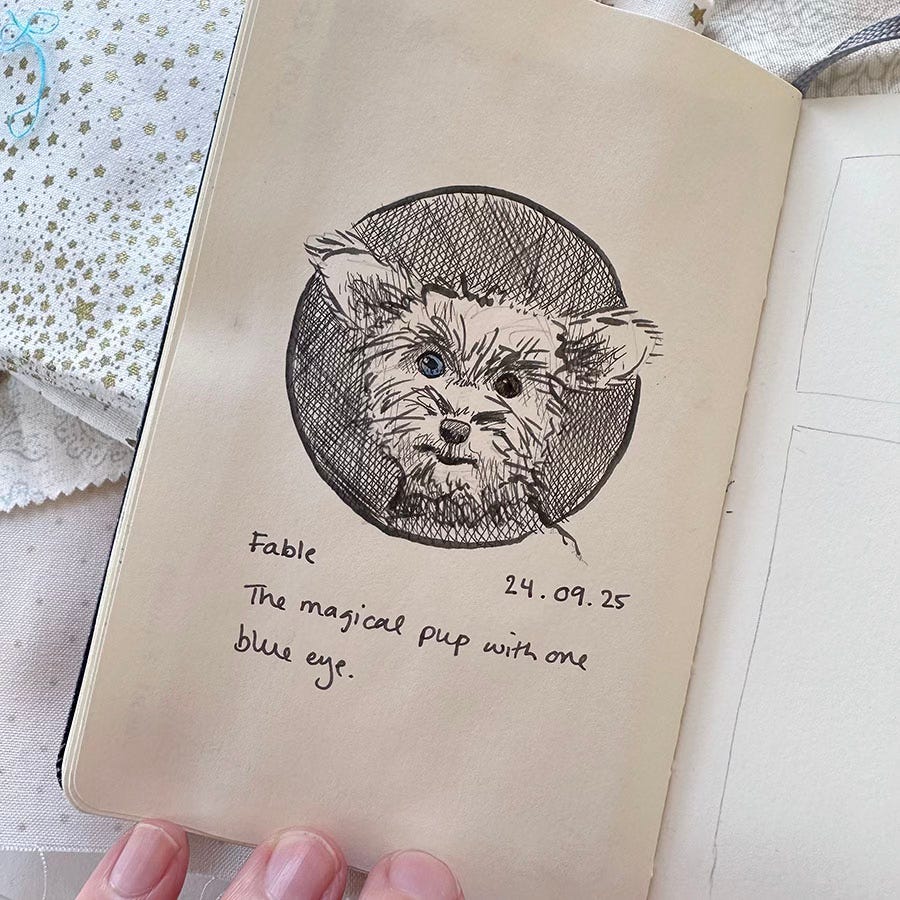 Fable
24.09.25
The magical pup with one
blue eye.